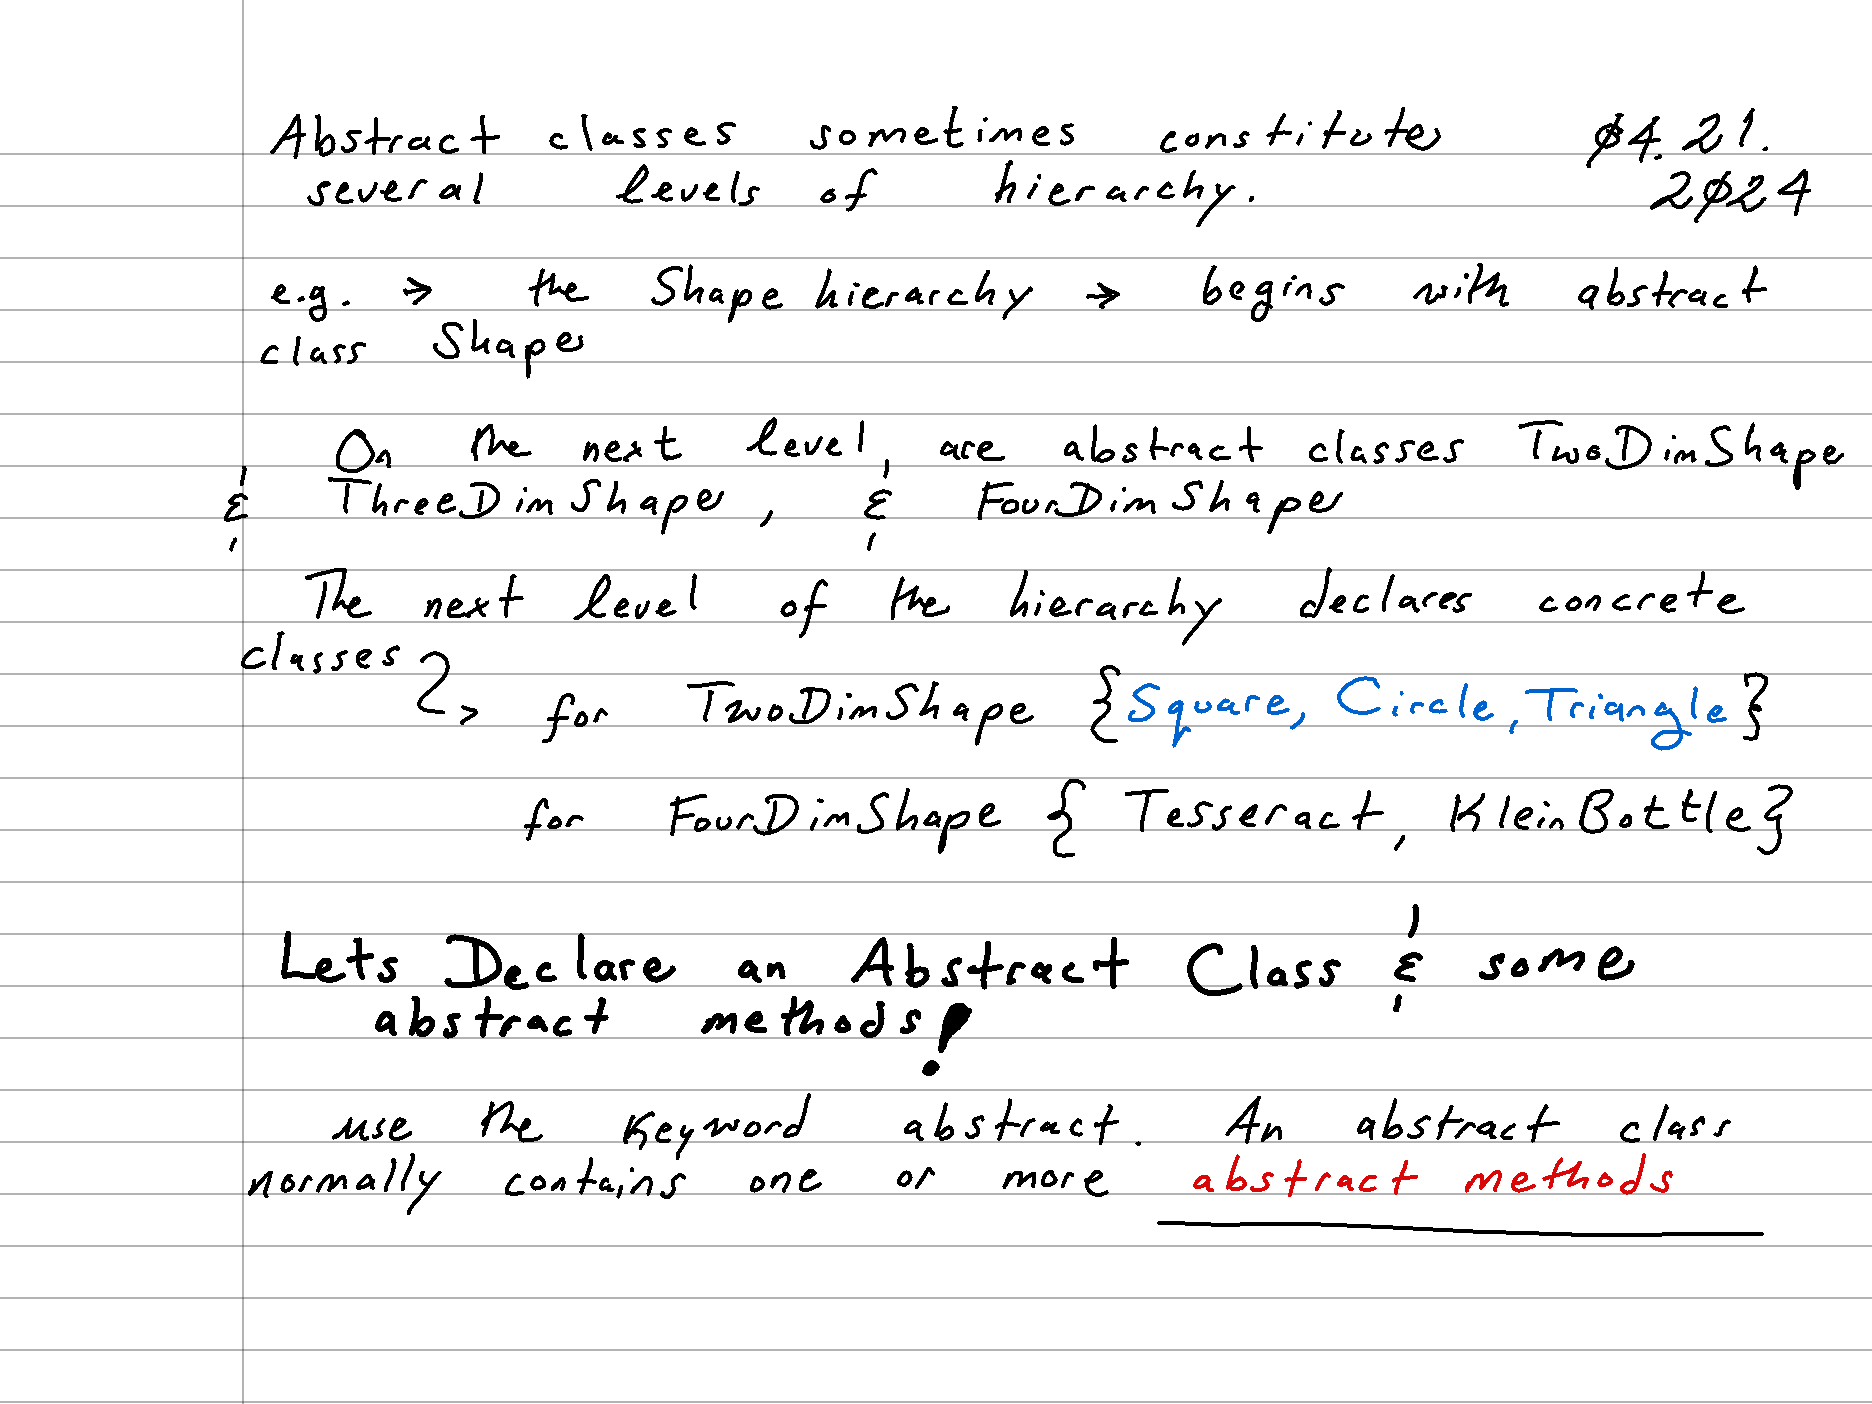 Abstract classes sometimes constitute ø4.21.
several levels of hierarchy. 2ø24
e.g. → the Shape hierarchy → begins with abstract
class Shape
On the next level, are abstract classes TwoDimShape
& ThreeDimShape, & FourDimShape
The next level of the hierarchy declares concrete
classes
for TwoDimShape {Square, Circle, Triangle}
for FourDimShape { Tesseract, KleinBottle}
Lets Declare an Abstract Class & some
abstract methods!
use the keyword abstract. An abstract class
normally contains one or more abstract methods